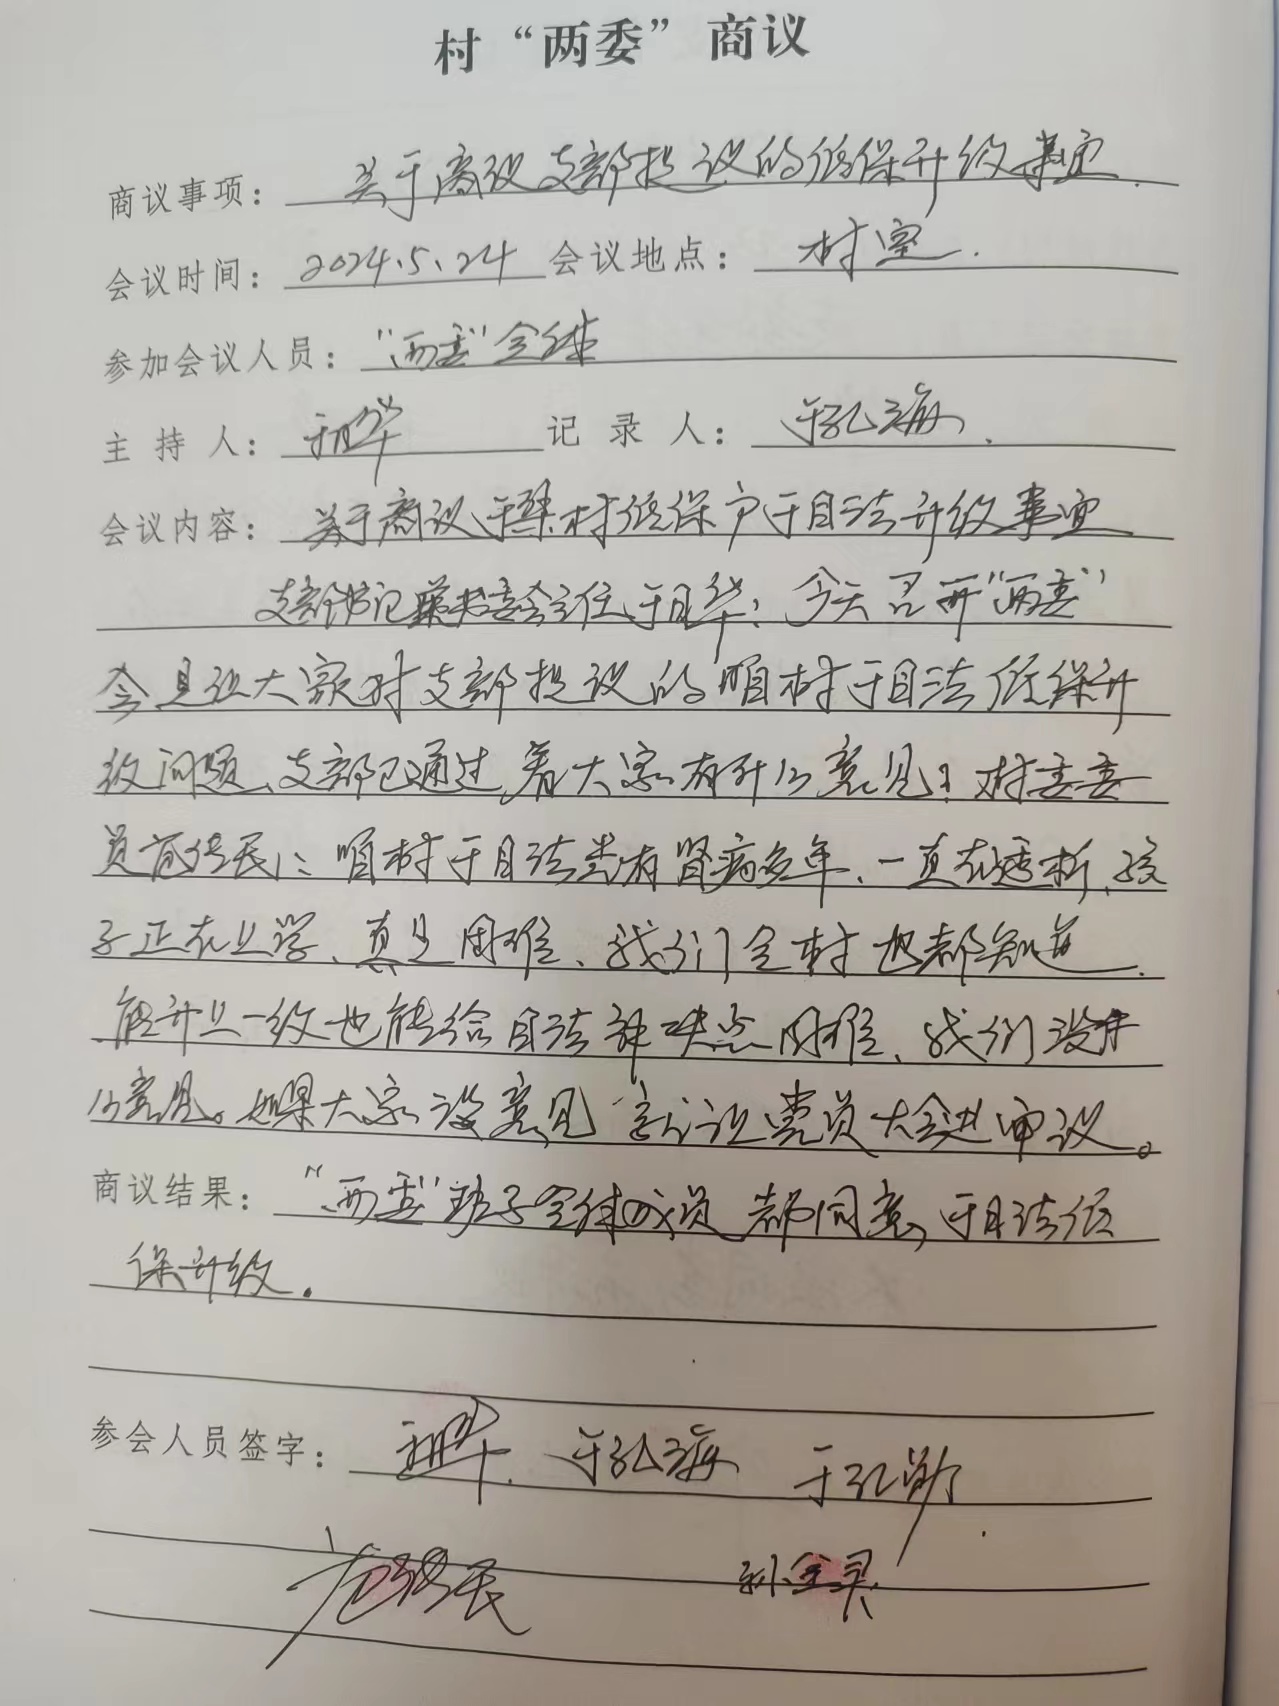 村“两委”商议
商议事项：关于商议支部提议的低保升级事宜.
会议时间：2024.5.24 会议地点：村室.
参加会议人员：“两委”全体
主持人：于自华 记录人：于孔海.
会议内容：关于商议于集村低保户于自法升级事宜
支部书记兼村委会主任于自华：今天召开“两委”
会是让大家对支部提议的咱村于自法低保升
级问题、支部已通过,看大家有什么意见？村委委
员范洪民：咱村于自法患有肾病多年、一直在透析、孩
子正在上学、真是困难、我们全村也都知道.
能升上一级也能给自法解决点困难、我们没什
么意见。如果大家没意见 就让党员大会进审议。
商议结果：“两委”班子全体成员都同意,于自法低
保升级。
参会人员签字：于自华. 于孔海 于孔
范洪民 孙金灵